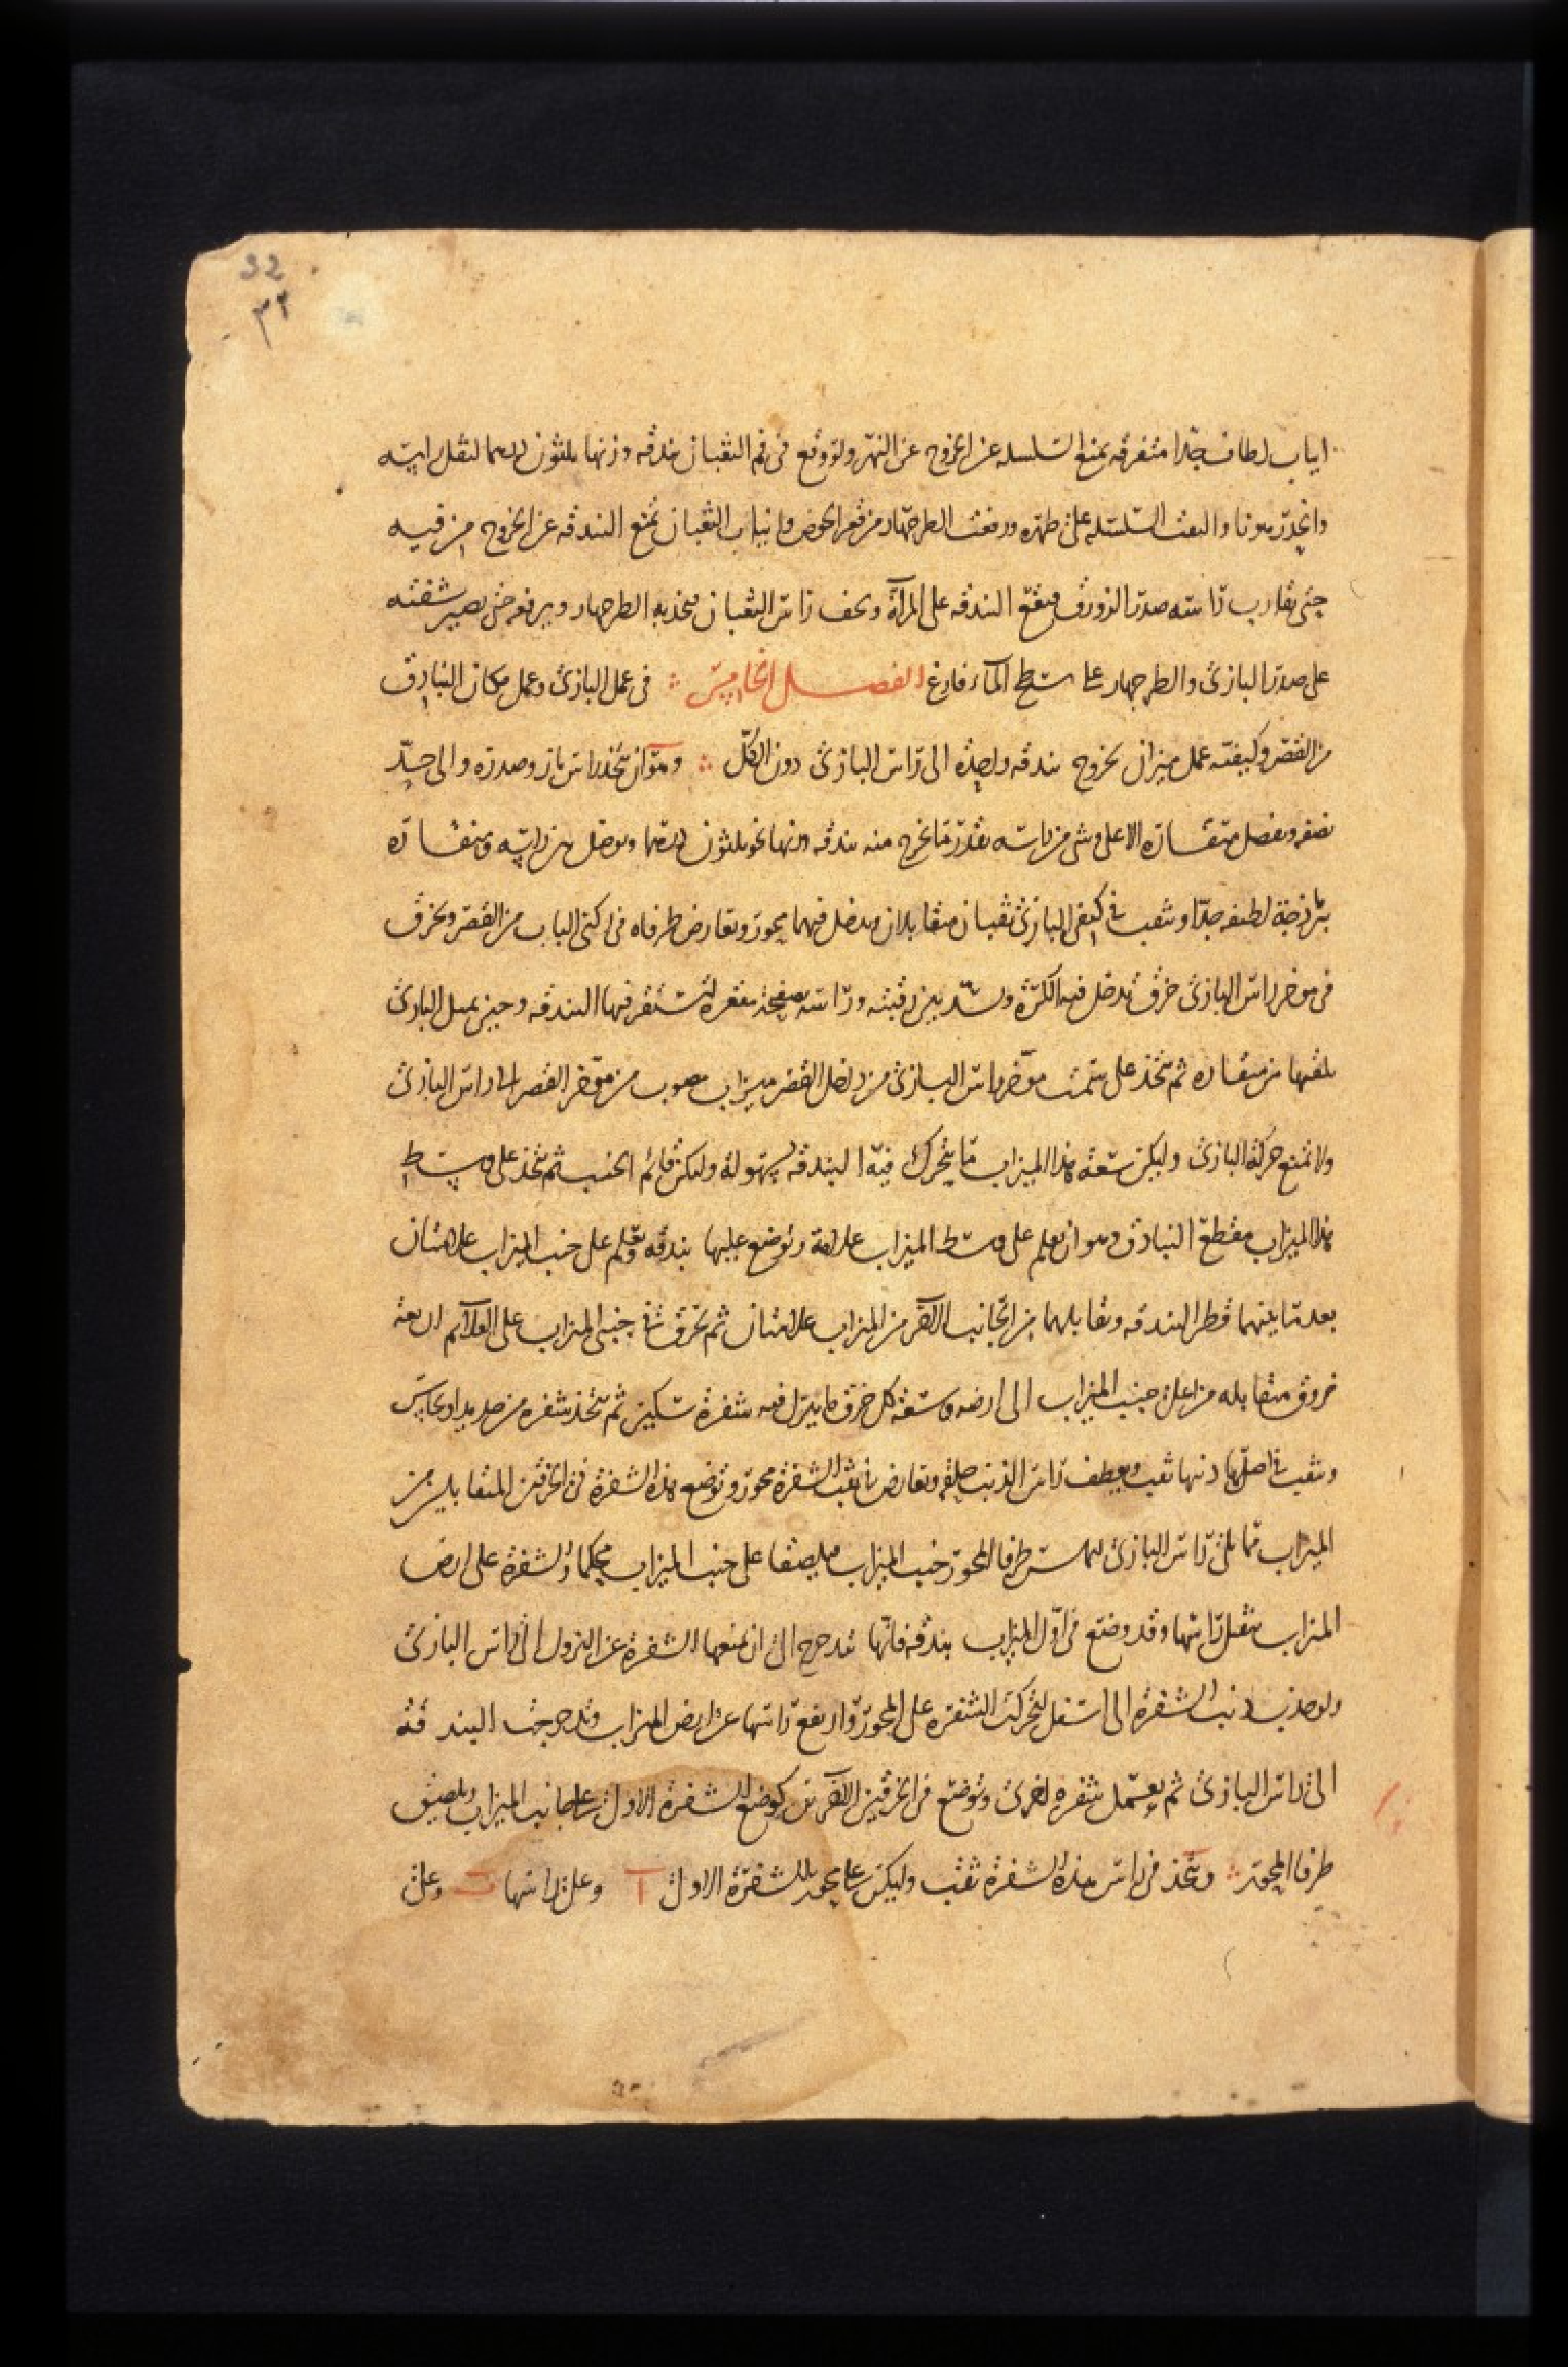 32
٣٢
انياب لطاف جدا متفرقه تمنع السلسله عن الخروج عن النهر ولو وقع في فم الثعبان بندقه وزنها ثلثون درهما لثقل راسه
وانحدر هونا والتفت السلسله على ظهره ورفعت الطرجهار من قعر الحوض وانياب الثعبان تمنع البندقه عن الخروج من فيه
حتى يقارب راسه صدر الزورق فتقع البندقه على المرآة ويخف راس الثعبان فيجذبه الطرجهار ويرفعه حتى يصير شفته
على صدر البازي والطرجهار على سطح الماء فارغ الفصل الخامس في عمل البازي وعمل مكان البنادق
من القصر وكيفية عمل ميزان يخرج بندقه واحده الى راس البازي دون الكل وهو ان يتخذ راس باز وصدره والى حد
نصفه ويفصل منقاره الاعلى وشي من راسه بقدر ما يخرج منه بندقه وزنها نحو ثلثون درهما ويوصل بين راسه ومنقاره
بنرماذجة لطيفه جدا ويثقب في كتفي البازي ثقبان متقابلان ويدخل فيهما محور ويعارض طرفاه في ركني الباب من القصر ويخرق
في موخر راس البازي خرق تدخل فيه الكرة ويشد بين رقبته وراسه بصفيحة مقعره لتستقر فيها البندقه وحين يميل البازي
يلقيها من منقاره ثم يتخذ على سمت موخر راس البازي من داخل القصر ميزاب مصوب من موخر القصر الى راس البازي
ولا تمنع حركة البازي وليكن سعة هذا الميزاب ما يتحرك فيه البندقه بسهولة وليكن قائم الجنب ثم يتخذ على وسط
هذا الميزاب مقطع البنادق وهو ان يعلم على وسط الميزاب علامة وتوضع عليها بندقه ويعلم على جنب الميزاب علامتان
بعد ما بينهما قطر البندقه ويقابلهما من الجانب الآخر من الميزاب علامتان ثم يخرق في جنبي الميزاب على العلائم اربعة
خروق متقابله من اعلى جنب الميزاب الى ارضه وسعة كل خرق ما ينزل فيه شفرة سكين ثم يتخذ شفره من حديد او نحاس
ويثقب في اصل ذنبها ثقب ويعطف راس الذنب حلقه ويعارض في ثقب الشفرة محور وتوضع هذه الشفرة في الخرقين المتقابلين من
الميزاب مما يلي راس البازي ليماس طرفا المحور جنب الميزاب فيلصقا على جنب الميزاب محكما والشفرة على ارض
الميزاب بثقل راسها وقد وضع في اول الميزاب بندقه فانها تتدحرج الى ان تمنعها الشفرة عن النزول الى راس البازي
ولو جذب ذنب الشفرة الى اسفل لتحركت الشفره على المحور وارتفع راسها عن ارض الميزاب وتدحرجت البندقه
الى راس البازي ثم يعمل شفره اخرى وتوضع في الخرقين الآخرين كوضع الشفرة الاولى على جانب الميزاب ويلصق
طرفا المحور ويتخذ في راس هذه الشفرة ثقب وليكن على محور الشفرة الاولى ا وعلى راسها ب وعلى